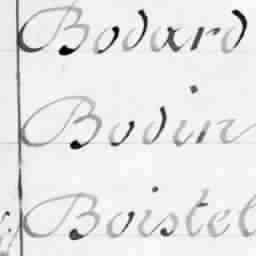 Bodard
Bodin
Boistel